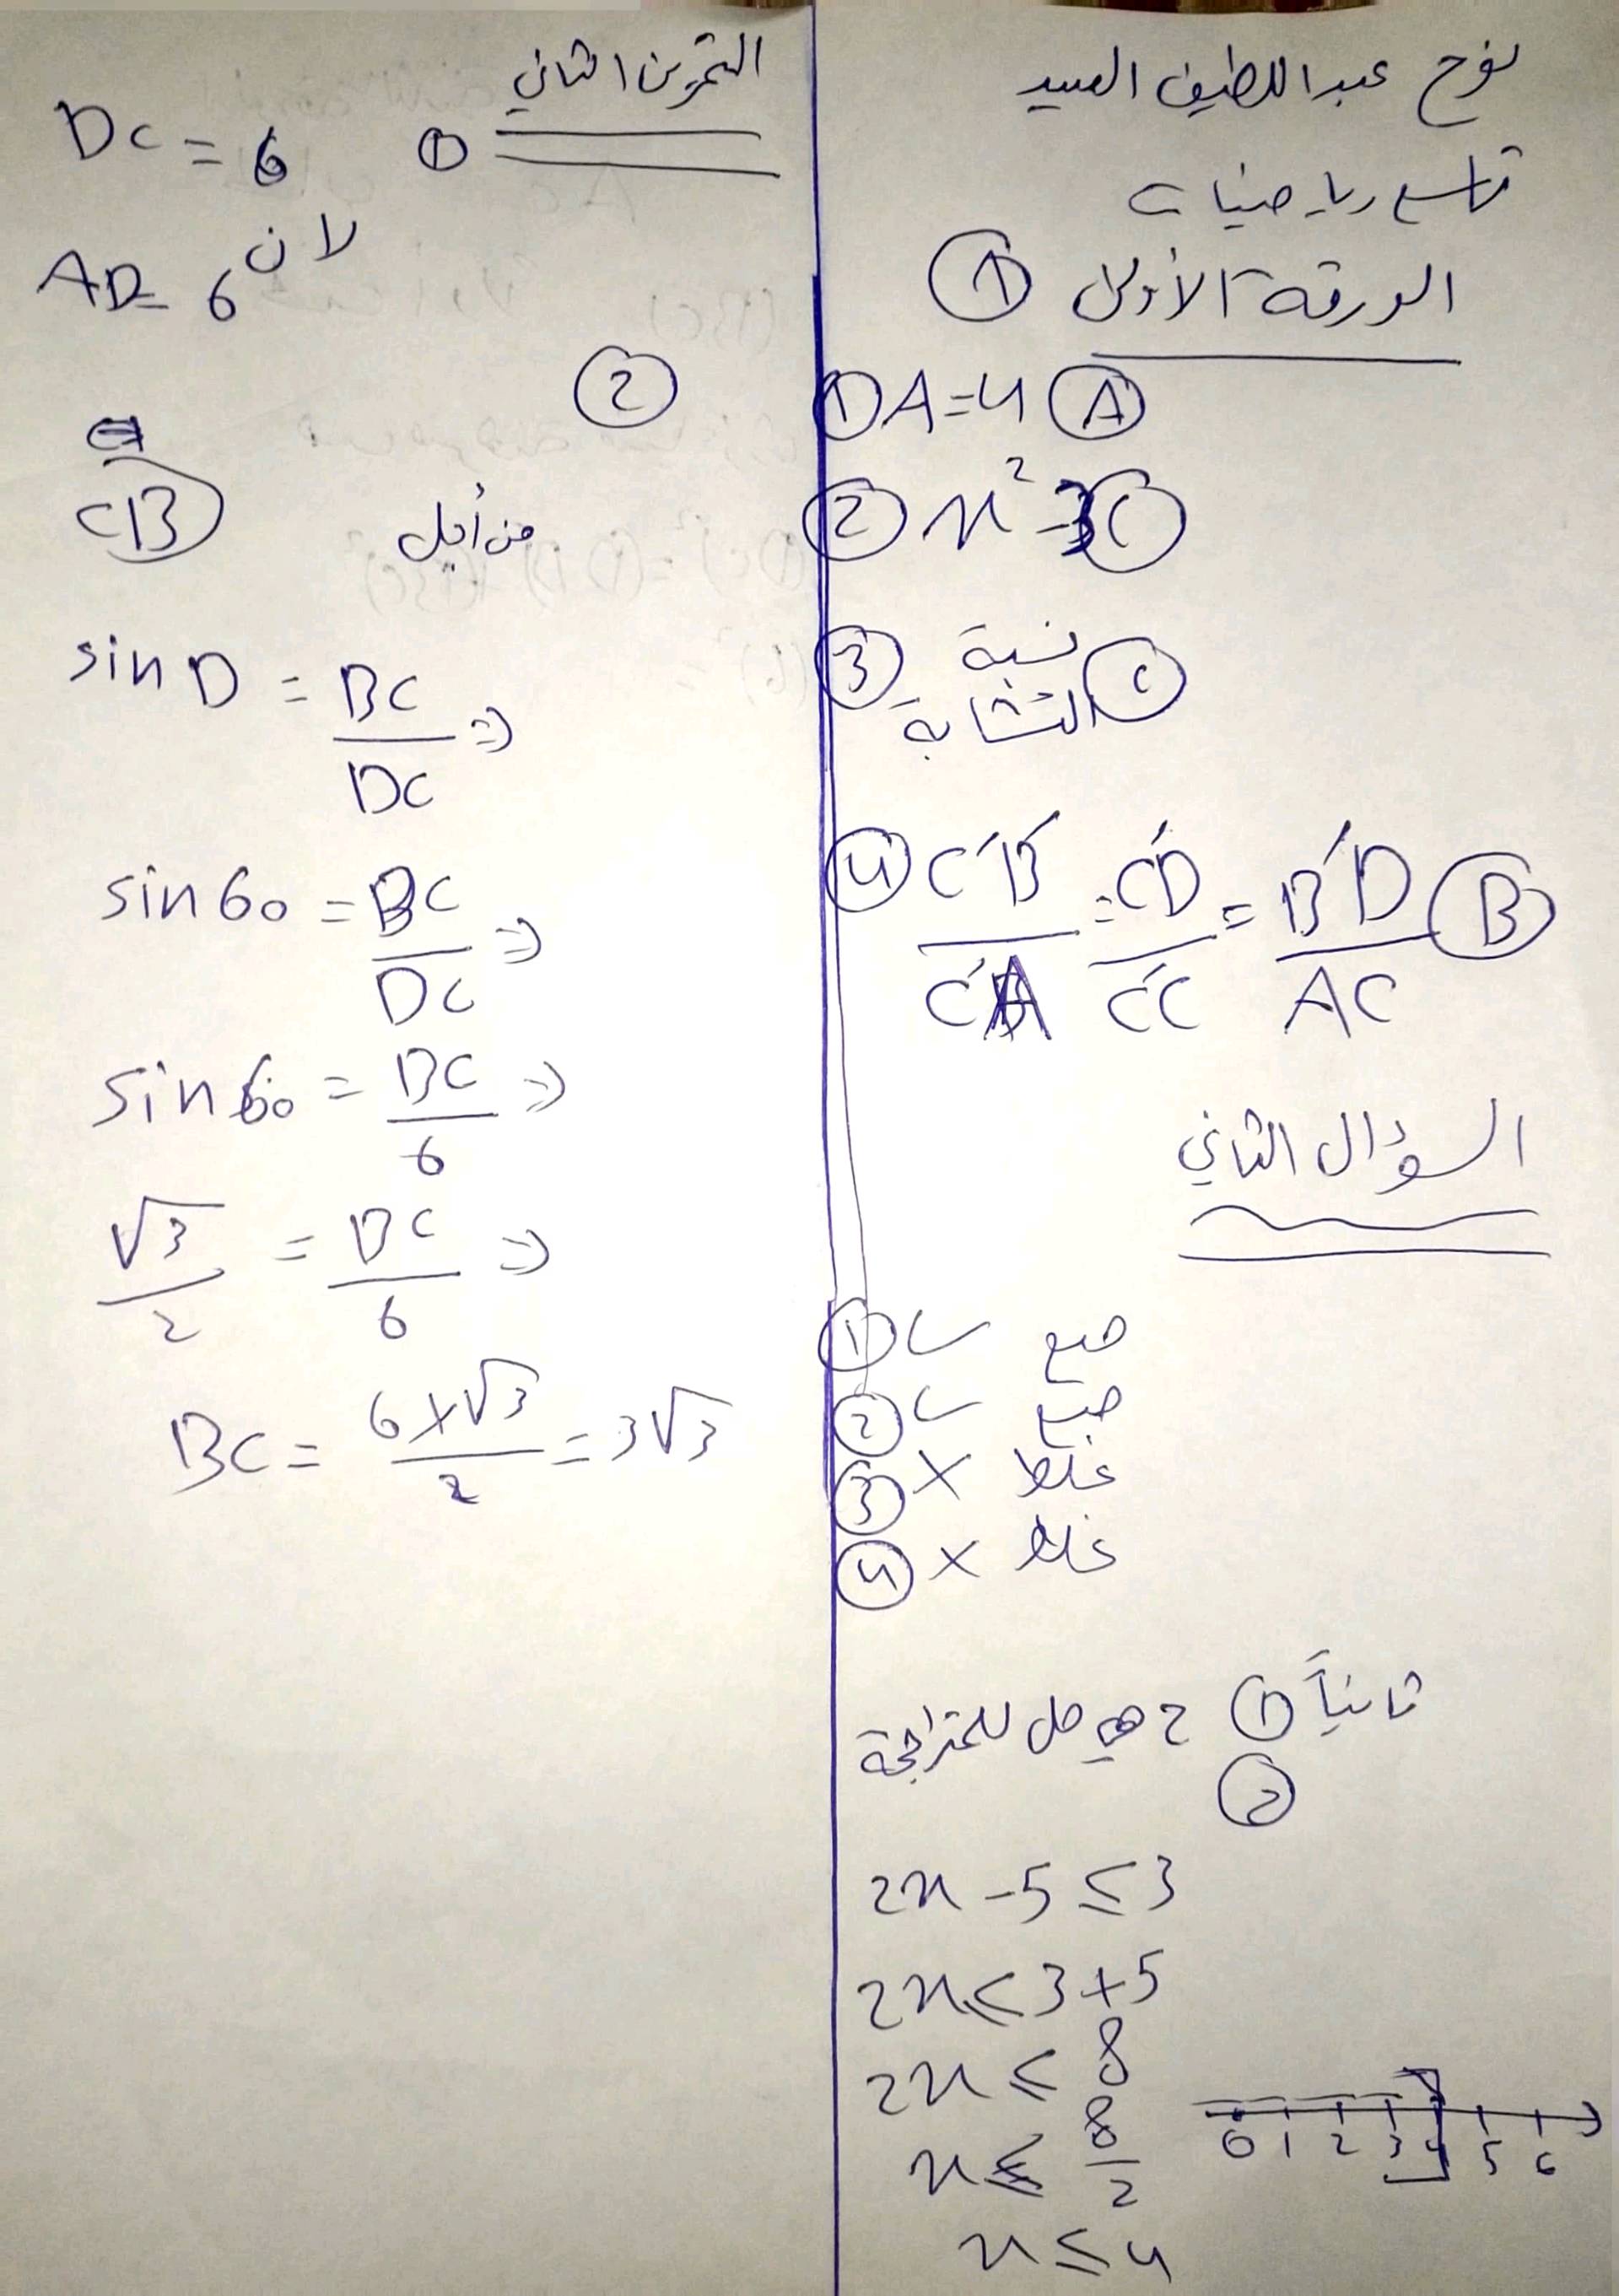 نوح عبد اللطيف العبيد
تاسع رياضيات
الورقة الأولى ①
① A=4 Ⓐ
② x² - 3 Ⓒ
③ نسبة التشابة Ⓒ
④ C'B'/C'A = C'D/C'C = B'D/AC Ⓑ
السؤال الثاني
① صح
② صح
③ × غلط
④ × غلط
ثانياً ① 2 هي حل للمتراجحة
②
2x - 5 ≤ 3
2x ≤ 3 + 5
2x ≤ 8
x ≤ 8/2
0 1 2 3 4 5 6
x ≤ 4
التمرين الثاني
① DC = 6
لان
AD = 6
②
من أجل
CB
sin D = BC/DC ⇒
sin 60 = BC/DC ⇒
sin 60 = BC/6 ⇒
√3/2 = BC/6 ⇒
BC = 6×√3/2 = 3√3